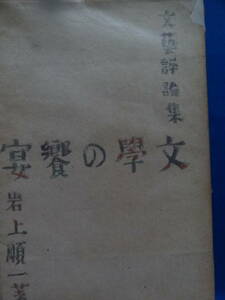 文藝評論集
文學の饗宴
岩上順一著